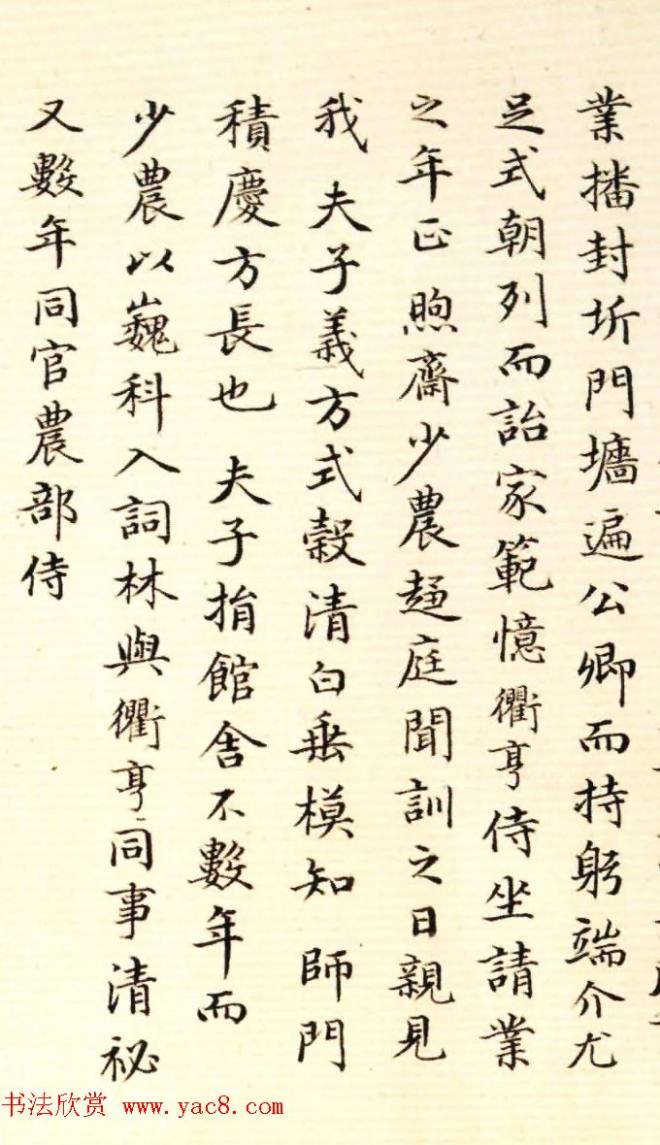 業播封圻門墻遍公卿而持躬端介尤
足式朝列而詒家範憶衢亨侍坐請業
之年正煦齋少農趨庭聞訓之日親見
我 夫子義方式穀清白垂模知 師門
積慶方長也 夫子捐館舍不數年而
少農以巍科入詞林與衢亨同事清祕
又數年同官農部侍
书法欣赏 www.yac8.com